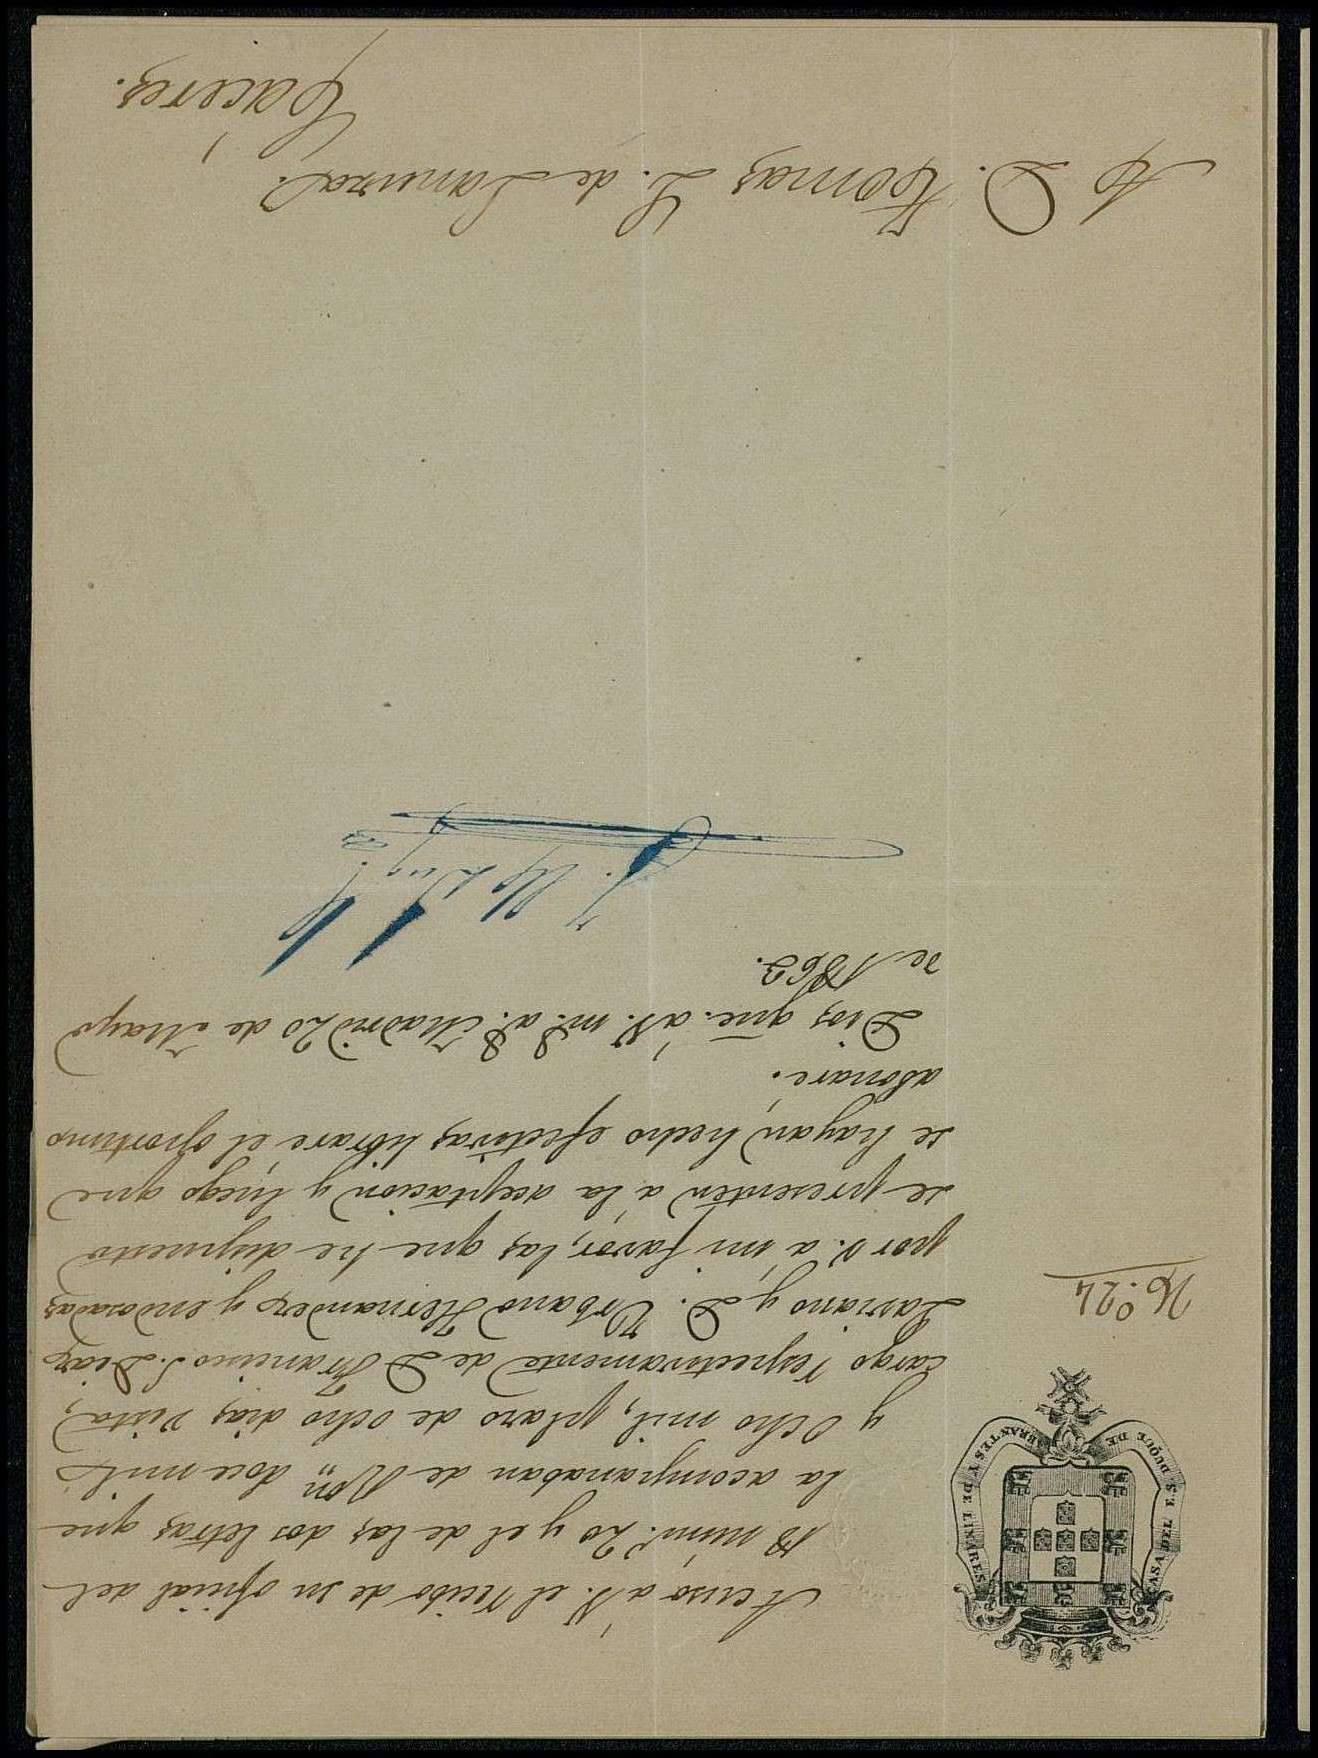 CASA DEL E.S. DUQUE DE ABRANTES Y DE LINARES
N.º 24
Acuso a V. el recibo de su oficial del
18 núm.º 20 y el de las dos letras que
la acompañaban de Rs. vn., doce mil
y Ocho mil, plazo de ocho dias vista,
cargo respectivamente de D. Francisco S. Diaz
Lariano y D. Urbano Hernandez y endosadas
por V. á mi favor, las que he dispuesto
se presenten á la aceptacion y luego que
se hayan hecho efectivas libraré el oportuno
abonaré.
Dios gue. á V. m.s a.s Madrid 20 de Mayo
de 1863.
A D. Tomas L. de Sanmral.
Cáceres.